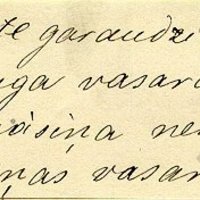 te garaudzi
uga vasara
māsiņa ne
ņas vasar